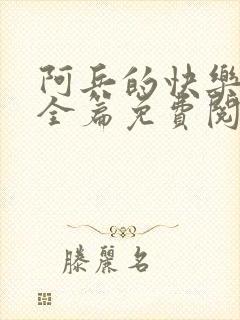 阿兵的快樂
全篇免費閱
滕麗名